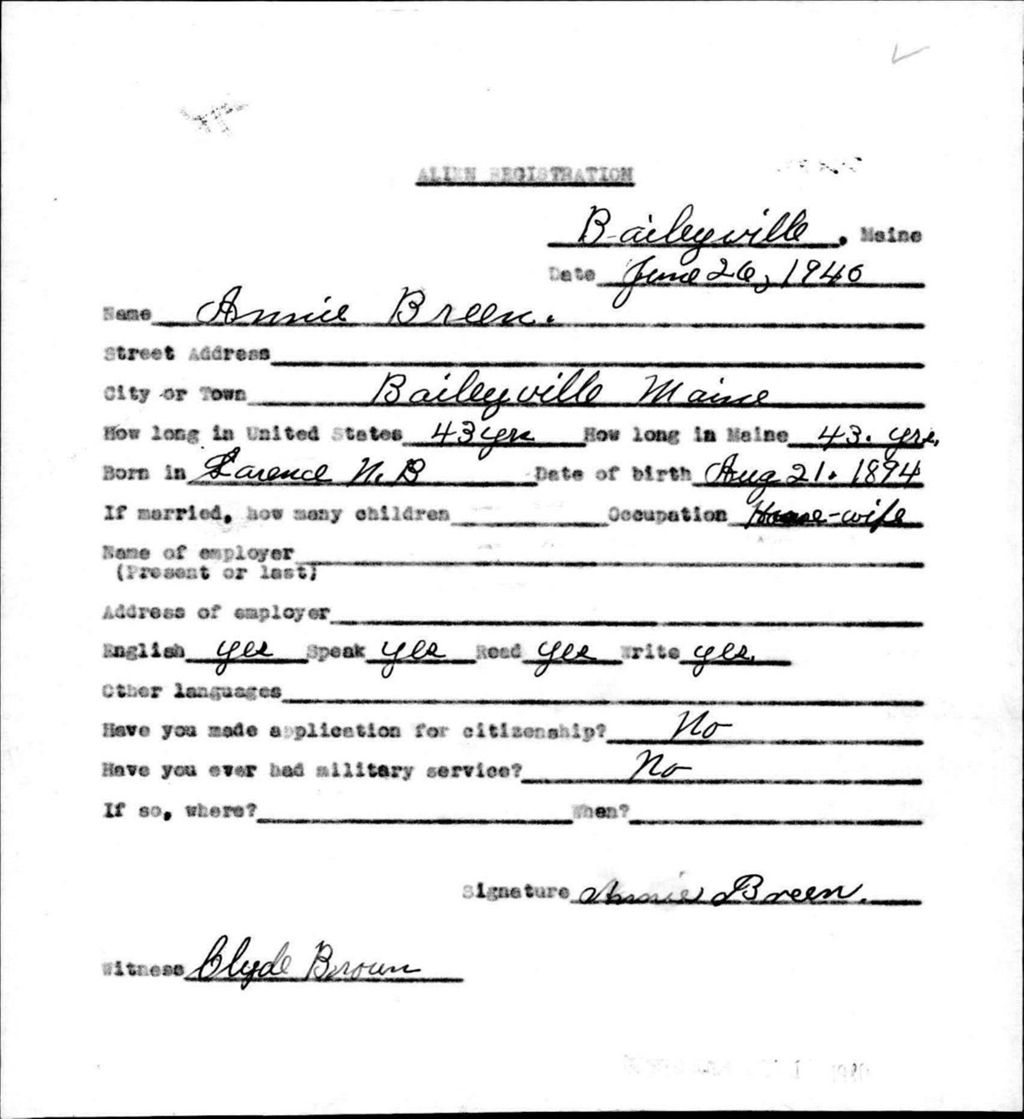 ALIEN REGISTRATION
Baileyville, Maine
Date June 26, 1940
Name Annie Breen.
Street Address
City or Town Baileyville Maine
How long in United States 43 yrs How long in Maine 43. yrs.
Born in N.B Date of birth Aug 21. 1894
If married, how many children Occupation House-wife
Name of employer
(Present or last)
Address of employer
English yes Speak yes Read yes Write yes.
Other languages
Have you made application for citizenship? No
Have you ever had military service? No
If so, where? When?
Signature Annie Breen.
Witness Clyde Brown